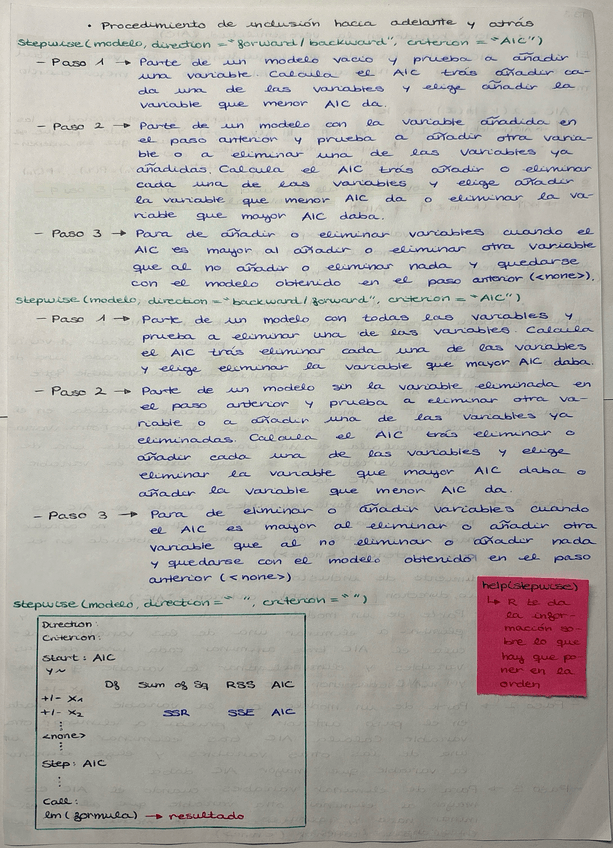 • Procedimiento de inclusión hacia adelante y atrás
stepwise(modelo, direction = "forward/backward", criterion = "AIC")
- Paso 1 → Parte de un modelo vacío y prueba a añadir
una variable. Calcula el AIC trás añadir ca-
da una de las variables y elige añadir la
variable que menor AIC da.
- Paso 2 → Parte de un modelo con la variable añadida en
el paso anterior y prueba a añadir otra varia-
ble o a eliminar una de las variables ya
añadidas. Calcula el AIC trás añadir o eliminar
cada una de las variables y elige añadir
la variable que menor AIC da o eliminar la va-
riable que mayor AIC daba.
- Paso 3 → Para de añadir o eliminar variables cuando el
AIC es mayor al añadir o eliminar otra variable
que al no añadir o eliminar nada y quedarse
con el modelo obtenido en el paso anterior (<none>).
stepwise(modelo, direction = "backward/forward", criterion = "AIC")
- Paso 1 → Parte de un modelo con todas las variables y
prueba a eliminar una de las variables. Calcula
el AIC trás eliminar cada una de las variables
y elige eliminar la variable que mayor AIC daba.
- Paso 2 → Parte de un modelo sin la variable eliminada en
el paso anterior y prueba a eliminar otra va-
riable o a añadir una de las variables ya
eliminadas. Calcula el AIC trás eliminar o
añadir cada una de las variables y elige
eliminar la variable que mayor AIC daba o
añadir la variable que menor AIC da.
- Paso 3 → Para de eliminar o añadir variables cuando
el AIC es mayor al eliminar o añadir otra
variable que al no eliminar o añadir nada
y quedarse con el modelo obtenido en el paso
anterior (<none>)
stepwise(modelo, direction = " ", criterion = " ")
Direction:
Criterion:
Start: AIC
y ~
Df Sum of Sq RSS AIC
+/- x1
+/- x2 SSR SSE AIC
⋮
<none>
⋮
Step: AIC
⋮
Call:
lm(formula) → resultado
help(stepwise)
↳ R te da
la infor-
mación so-
bre lo que
hay que po-
ner en la
orden